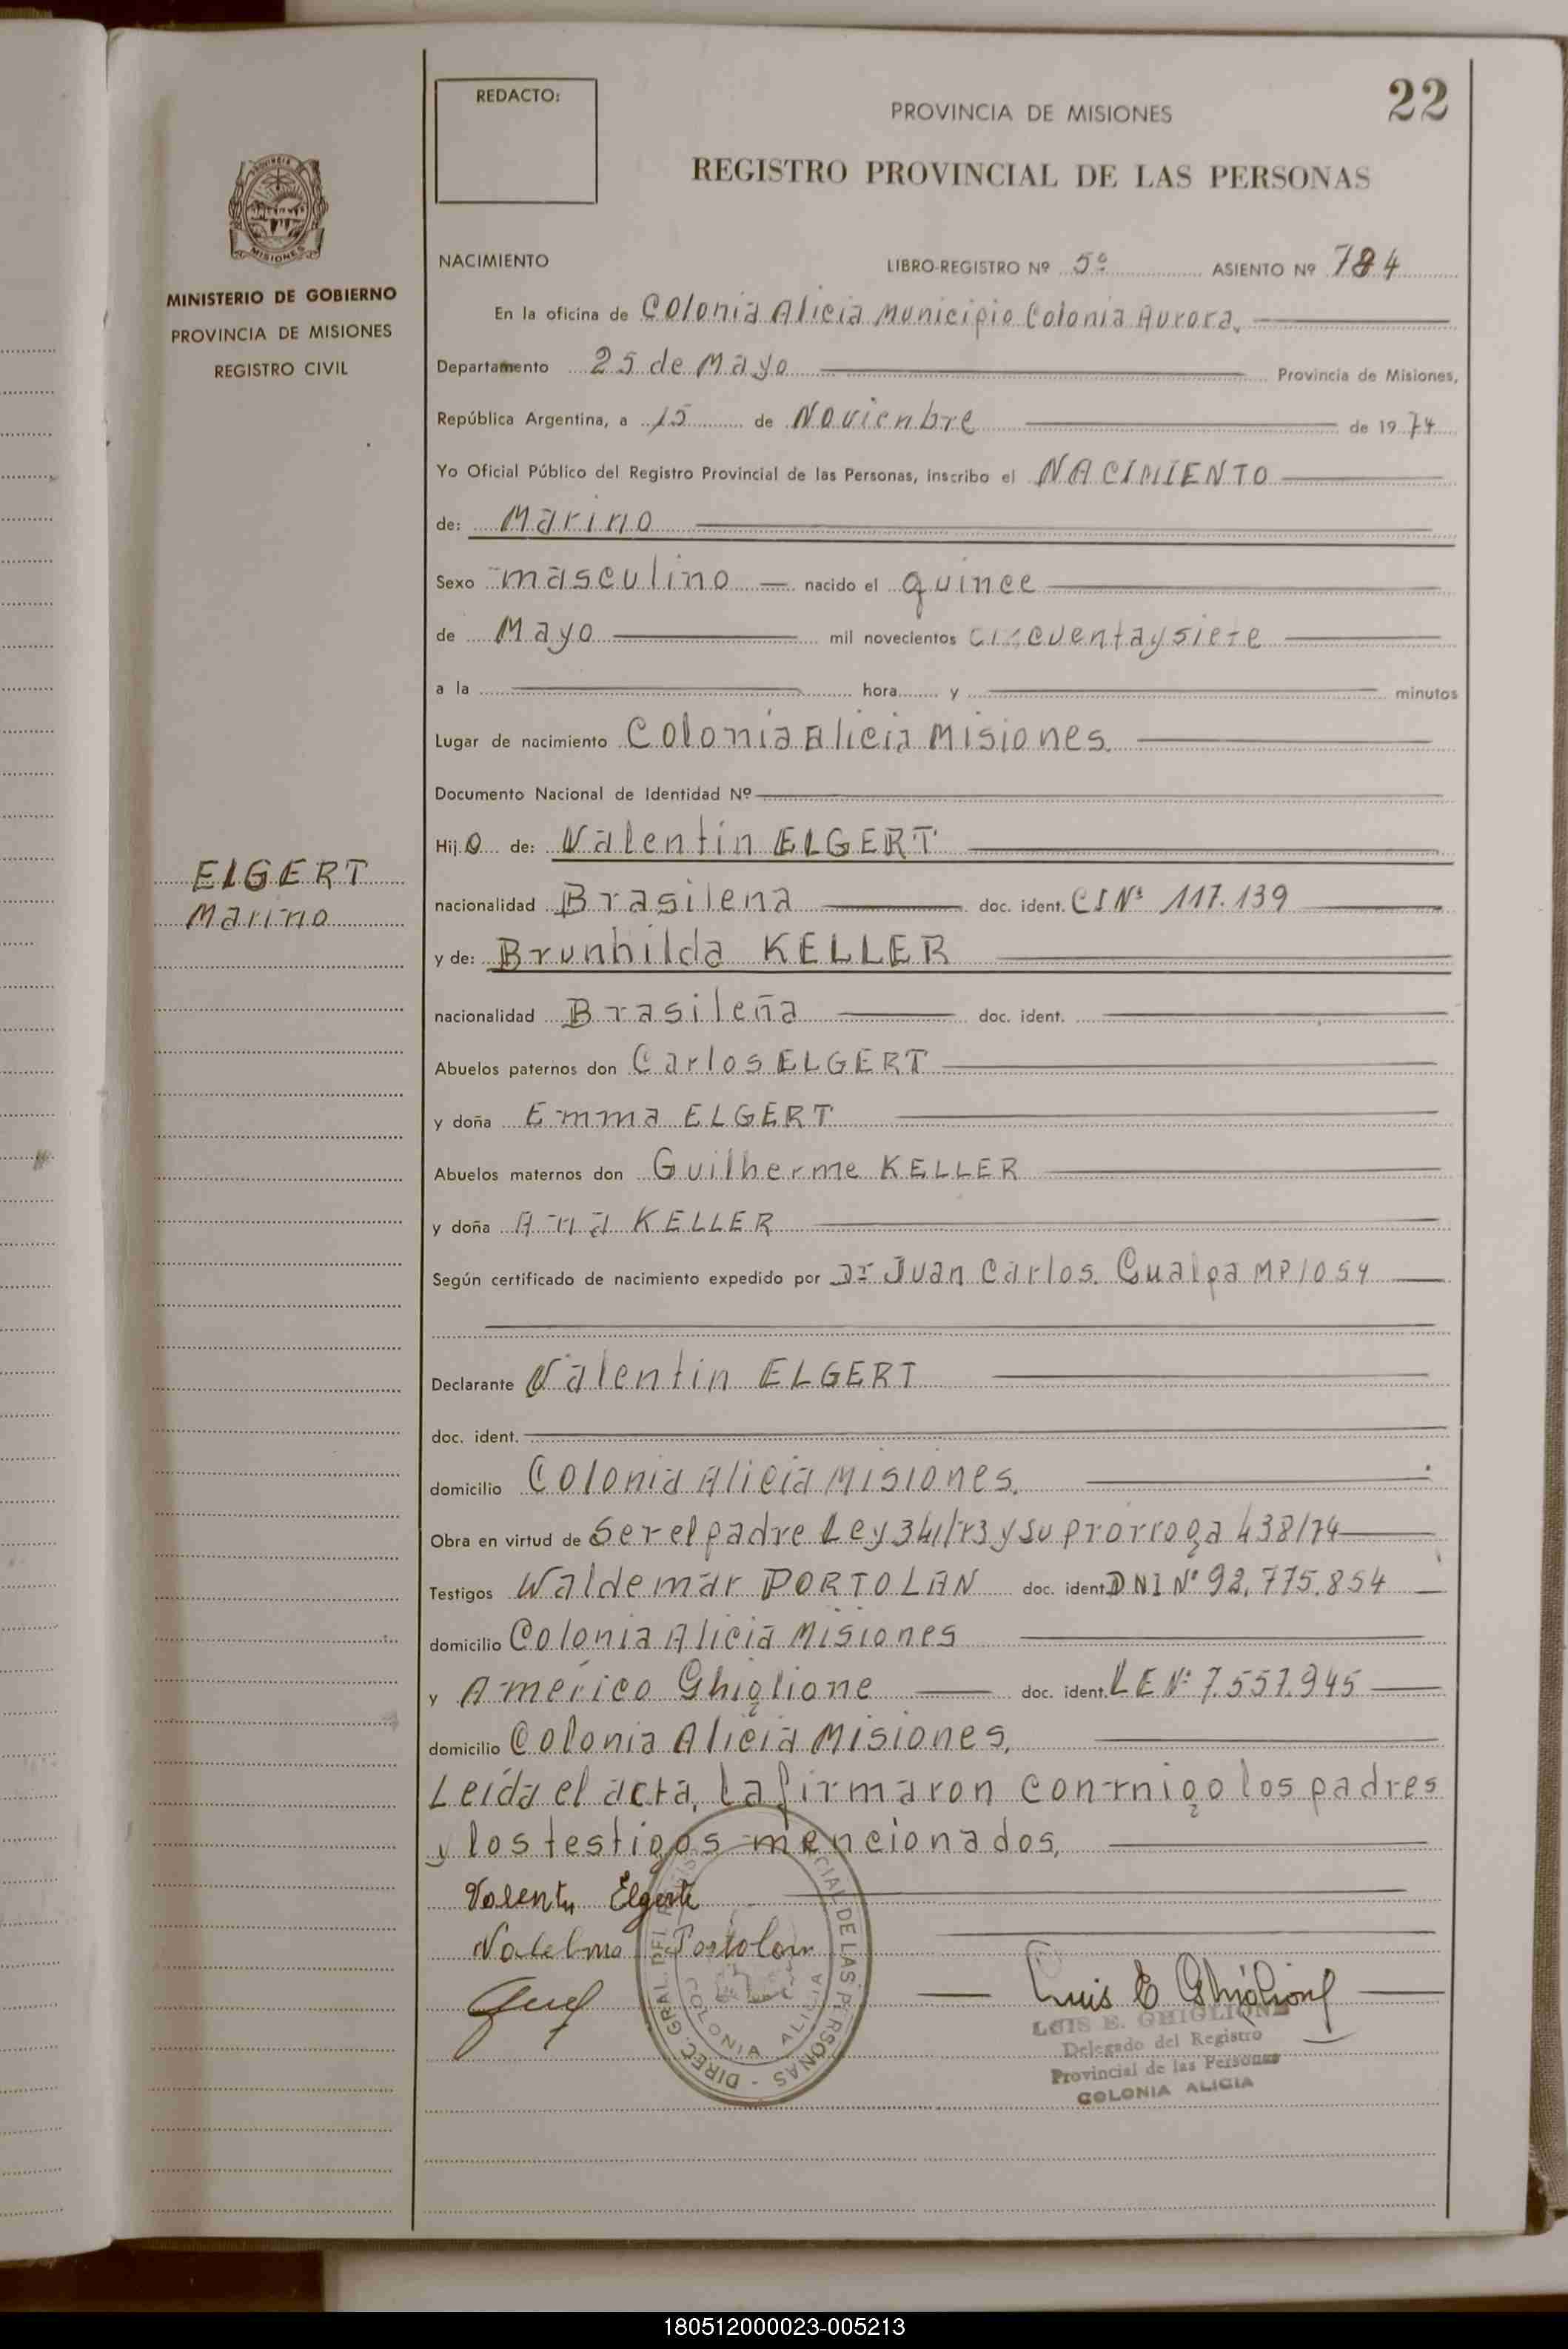 REDACTO:
PROVINCIA DE MISIONES
22
REGISTRO PROVINCIAL DE LAS PERSONAS
MISIONES
MINISTERIO DE GOBIERNO
PROVINCIA DE MISIONES
REGISTRO CIVIL
NACIMIENTO LIBRO-REGISTRO Nº 5º ASIENTO Nº 784
En la oficina de Colonia Alicia Municipio Colonia Aurora.
Departamento 25 de Mayo Provincia de Misiones,
República Argentina, a 15 de Novienbre de 1974
Yo Oficial Público del Registro Provincial de las Personas, inscribo el NACIMIENTO
de: Marino
Sexo masculino nacido el quince
de Mayo mil novecientos cincuentaysiete
a la hora y minutos
Lugar de nacimiento Colonia Alicia Misiones.
Documento Nacional de Identidad Nº
Hijo de: Valentin ELGERT
ELGERT
Marino
nacionalidad Brasilena doc. ident. CI Nº 117.139
y de: Brunhilda KELLER
nacionalidad Brasileña doc. ident.
Abuelos paternos don Carlos ELGERT
y doña Emma ELGERT
Abuelos maternos don Guilherme KELLER
y doña Ana KELLER
Según certificado de nacimiento expedido por Dr Juan Carlos. Gualpa MP1054
Declarante Valentin ELGERT
doc. ident.
domicilio Colonia Alicia Misiones.
Obra en virtud de Ser el padre Ley 341/73 y su prórroga 438/74
Testigos Waldemar PORTOLAN doc. ident. DNI Nº 92.775.854
domicilio Colonia Alicia Misiones
y Américo Ghiglione doc. ident. LE Nº 7.557.945
domicilio Colonia Alicia Misiones.
Leída el acta, la firmaron conmigo los padres
y los testigos mencionados,
Valentin Elgert
Portolan
Luis E Ghiglione
LUIS E. GHIGLIONE
Delegado del Registro
Provincial de las Personas
COLONIA ALICIA
DIREC. GRAL. DEL REGISTRO PROVINCIAL DE LAS PERSONAS
COLONIA ALICIA
180512000023-005213